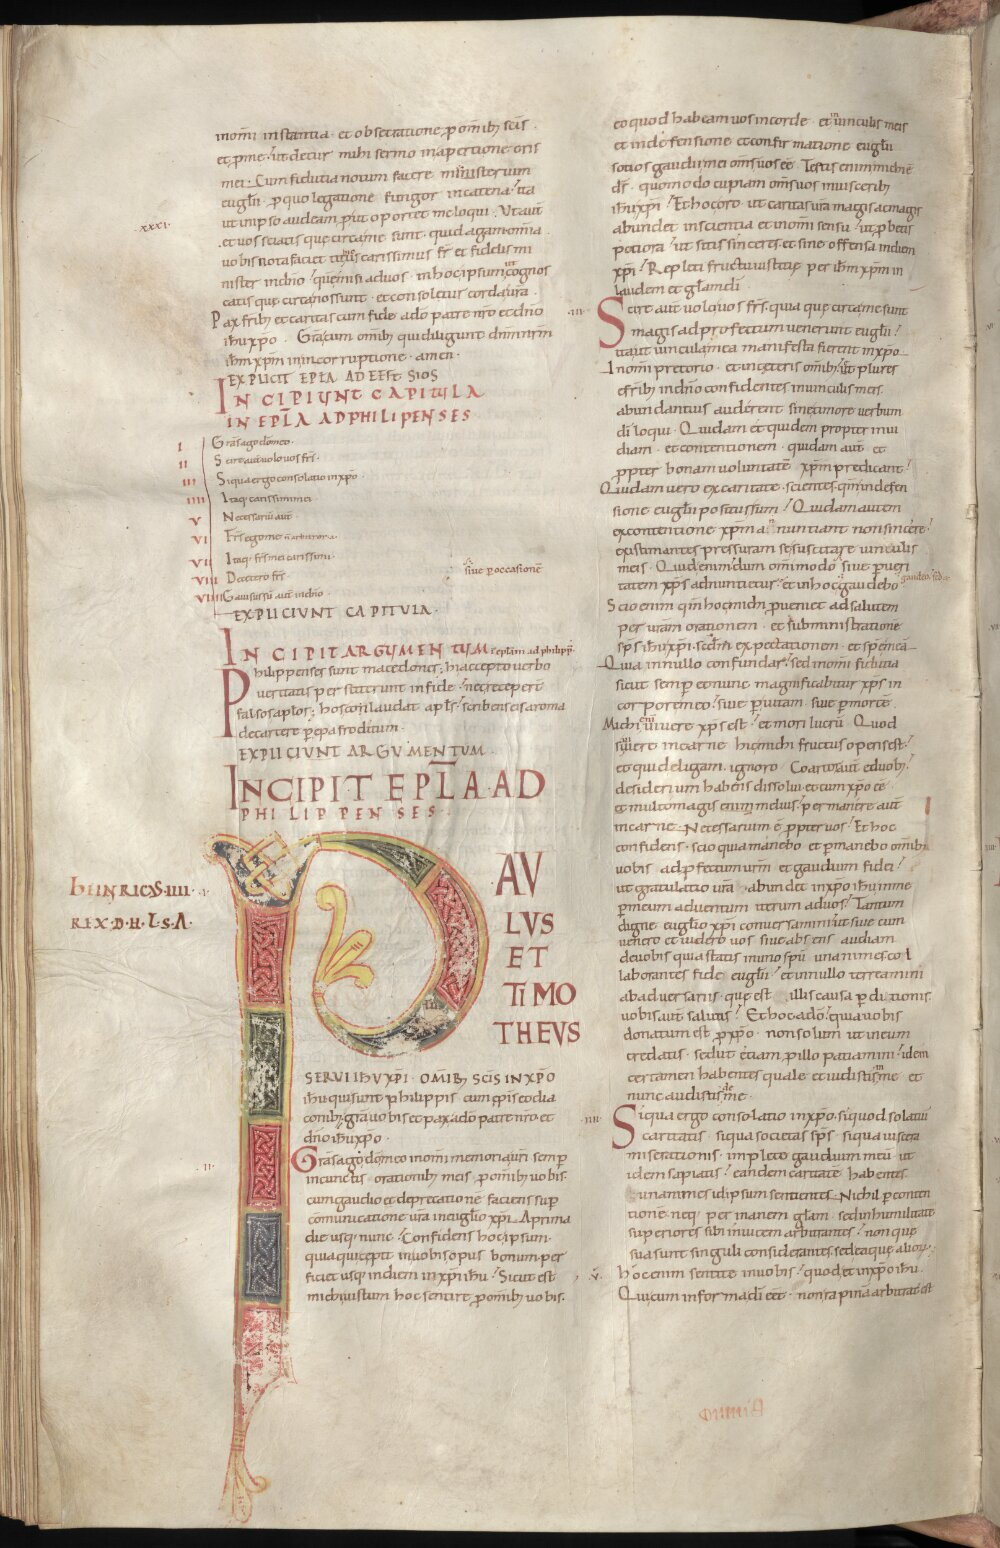 inom̄i instantia · et obsecratione ꝑ omīb; scīs ·
et ꝑ me · ut detur mihi sermo in apertione oris
mei · Cum fidutia notum facere ministerium
euglīi · ꝑ quo legatione fungor in catena · ita
ut in ipso audeam ꝑut oportet me loqui · Ut aūt
et vos sciatis que circa me sunt · quid agam · omnia
xxxi
vobis nota faciet titicus carissimus fr̄ et fidelis mi
nister in dn̄o · quē misi ad vos · in hoc ipsum ut cognos
catis que circa nos sunt · et consoletur corda ūra ·
Pax frīb; et caritas cum fide a dō patre nr̄o et dn̄o
ihū xp̄o · Gr̄a cum omīb; qui diligunt dn̄m nr̄m
ihm̄ xp̄m in incorruptione · amen ·
EXPLICIT EPLA AD EFESIOS
INCIPIUNT CAPITULA
IN EPLA AD PHILIPENSES
I Grās ago dō meo ·
II Scire aut volo vos frs̄ ·
III Si qua ergo consolatio in xp̄o ·
IIII Itaq; carissimi mei
V Necessariū aut̄ ·
VI Frs̄ ego me n̄ arbitror ·
VII Itaq; frs̄ mei carissimi ·
VIII De cetero frs̄
VIIII Gavisus sū aut̄ in dn̄o ·
sive ꝑ occasionē
EXPLICIUNT CAPITULA ·
INCIPIT ARGUMENTUM epl̄am ad philipp̄
Philippenses sunt macedones; hi accepto verbo
veritatis perstiterunt in fide · nec receper̄t
falsos apl̄os; hos conlaudat apl̄s · scribens eis a roma
de carcere ꝑ epafroditum ·
EXPLICIUNT ARGUMENTUM ·
INCIPIT EPLA · AD
PHILIPPENSES ·
HEINRICVS · IIII ·
REX · D · H · L · S · A ·
PAV
LVS
ET
TIMO
THEVS
SERVI IHV XPI · OMIB; SCIS IN XPO
ihū qui sunt philippis cum ep̄is et dia
conib; · gr̄a vobis et pax a dō patre nr̄o et
dn̄o ihū xp̄o ·
II
Grās ago dō meo in om̄i memoria ūri semꝑ
in cunctis orationib; meis ꝑ omīb; vobis
cum gaudio et deprecatione faciens suꝑ
cōmunicatione ūra in euglīo xp̄i · A prima
die usq; nunc · Confidens hoc ipsum ·
quia qui cepit in vobis opus bonum · per
ficiet usq; in diem in xp̄i ihū · Sicut est
michi iustum hoc sentire ꝑ omīb; vobis ·
eo quod habeam vos in corde · et in vinculis meis
et in defensione et confirmatione euglīi
socios gaudii mei om̄s vos eē · Testis enim michi ē
ds̄ · quomodo cupiam om̄s vos in visceribȝ
ihū xp̄i · Et hoc oro ut caritas ūra magis ac magis
abundet in scientia et in omni sensu · ut ꝓbetis
potiora · ut sitis sinceres et sine offensa in diem
xp̄i · Repleti fructu iustitie per ihm̄ xp̄m in
laudem et glām dī ·
III
Scire aut̄ volo vos frs̄ · quia que circa me sunt
magis ad profectum venerunt euglīi ·
ita ut vincula mea manifesta fierent in xp̄o
In om̄i pretorio · et in ceteris omīb; · ut plures
e frīb; in dn̄o confidentes in vinculis meis ·
abundantius auderent sine timore verbum
dī loqui · Quidam et quidem propter invi
diam · et contentionem · quidam aut̄ et
ꝓpter bonam voluntatē xp̄m predicant ·
Quidam vero ex caritate · scientes qm̄ in defen
sione euglīi positus sum · Quidam autem
ex contentione xp̄m annuntiant non sincere ·
existimantes pressuram se suscitare vinculis
meis · Quid enim dum om̄i modo sive ꝑ veri
tatem xp̄s adnuntietur · et in hoc gaudebo
gaudeo · sed &
Scio enim qm̄ hoc michi ꝓveniet ad salutem
per ūram orationem · et subministratione
sp̄s ihū xp̄i · secdm expectationem · et spem meā
Quia in nullo confundar · sed in om̄i fidutia
sicut semꝑ et nunc magnificabitur xp̄s in
corpore meo · sive ꝑ vitam · sive ꝑ mortē ·
Michi enim vivere xp̄s est · et mori lucrū · Quod
si vivere in carne hic michi fructus operis est ·
et quid eligam · ignoro · Coartor aut̄ e duob; ·
desiderium habens dissolvi · et cum xp̄o eē
et multo magis enim melius · permanere aut̄
in carne · Necessarium ē ꝓpter vos · Et hoc
confidens · scio quia manebo et ꝑmanebo omīb;
vobis ad ꝓfectum ūrm et gaudium fidei ·
ut gratulatio ūra abundet in xp̄o ihū in me
ꝑ meum adventum iterum ad vos · Tantum
digne euglīo xp̄i conversamini · ut sive cum
venero et videro vos sive absens audiam
de vobis quia statis in uno spū unanimes · col
laborantes fide euglīi · et in nullo terreamini
ab adversariis · que est illis causa ꝑditionis ·
vobis aut̄ salutis · Et hoc a dō · quia vobis
donatum est ꝓ xp̄o · non solum ut in eum
credatis · sed ut etiam ꝓ illo patiamini · idem
certamen habentes quale et vidistis in me et
nunc audistis de me ·
IIII
Siqua ergo consolatio in xp̄o · siquod solatiū
caritatis · siqua societas sp̄s · siqua viscera
miserationis · implete gaudium meū ut
idem sapiatis · eandem caritatē habentes ·
unanimes idipsum sentientes · Nichil ꝑ conten
tionē neq; per inanem glām · sed in humilitate
superiores sibi invicem arbitrantes · non que
sua sunt singuli considerantes · sed ea que alior;
V
hoc enim sentite in vobis · quod et in xp̄o ihū ·
Qui cum in forma dī eēt · non rapinā arbitratus est
omnia